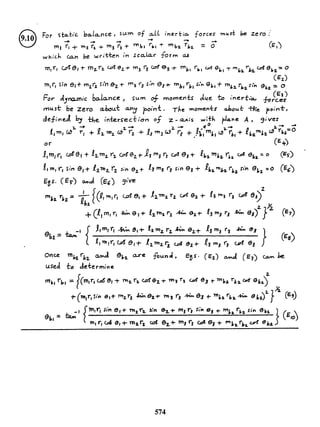 9.10
For static balance, sum of all inertia forces must be zero:
m₁ r⃗₁ + m₂ r⃗₂ + m₃ r⃗₃ + m_b1 r⃗_b1 + m_b2 r⃗_b2 = 0⃗ (E₁)
which can be written in scalar form as
m₁ r₁ cos θ₁ + m₂ r₂ cos θ₂ + m₃ r₃ cos θ₃ + m_b1 r_b1 cos θ_b1 + m_b2 r_b2 cos θ_b2 = 0 (E₂)
m₁ r₁ sin θ₁ + m₂ r₂ sin θ₂ + m₃ r₃ sin θ₃ + m_b1 r_b1 sin θ_b1 + m_b2 r_b2 sin θ_b2 = 0 (E₃)
For dynamic balance, sum of moments due to inertia forces
must be zero about any point. The moments about the point,
defined by the intersection of z-axis with plane A, gives
or (E₄)
l₁ m₁ r₁ cos θ₁ + l₂ m₂ r₂ cos θ₂ + l₃ m₃ r₃ cos θ₃ + l_b2 m_b2 r_b2 cos θ_b2 = 0 (E₅)
l₁ m₁ r₁ sin θ₁ + l₂ m₂ r₂ sin θ₂ + l₃ m₃ r₃ sin θ₃ + l_b2 m_b2 r_b2 sin θ_b2 = 0 (E₆)
Eqs. (E₅) and (E₆) give
m_b2 r_b2 = 1/l_b2 {(l₁ m₁ r₁ cos θ₁ + l₂ m₂ r₂ cos θ₂ + l₃ m₃ r₃ cos θ₃)²
+ (l₁ m₁ r₁ sin θ₁ + l₂ m₂ r₂ sin θ₂ + l₃ m₃ r₃ sin θ₃)²}^½ (E₇)
θ_b2 = tan⁻¹ {(l₁ m₁ r₁ sin θ₁ + l₂ m₂ r₂ sin θ₂ + l₃ m₃ r₃ sin θ₃) / (l₁ m₁ r₁ cos θ₁ + l₂ m₂ r₂ cos θ₂ + l₃ m₃ r₃ cos θ₃)} (E₈)
Once m_b2 r_b2 and θ_b2 are found, Eqs. (E₂) and (E₃) can be
used to determine
m_b1 r_b1 = {(m₁ r₁ cos θ₁ + m₂ r₂ cos θ₂ + m₃ r₃ cos θ₃ + m_b2 r_b2 cos θ_b2)²
+ (m₁ r₁ sin θ₁ + m₂ r₂ sin θ₂ + m₃ r₃ sin θ₃ + m_b2 r_b2 sin θ_b2)²}^½ (E₉)
θ_b1 = tan⁻¹ {(m₁ r₁ sin θ₁ + m₂ r₂ sin θ₂ + m₃ r₃ sin θ₃ + m_b2 r_b2 sin θ_b2) / (m₁ r₁ cos θ₁ + m₂ r₂ cos θ₂ + m₃ r₃ cos θ₃ + m_b2 r_b2 cos θ_b2)} (E₁₀)
574